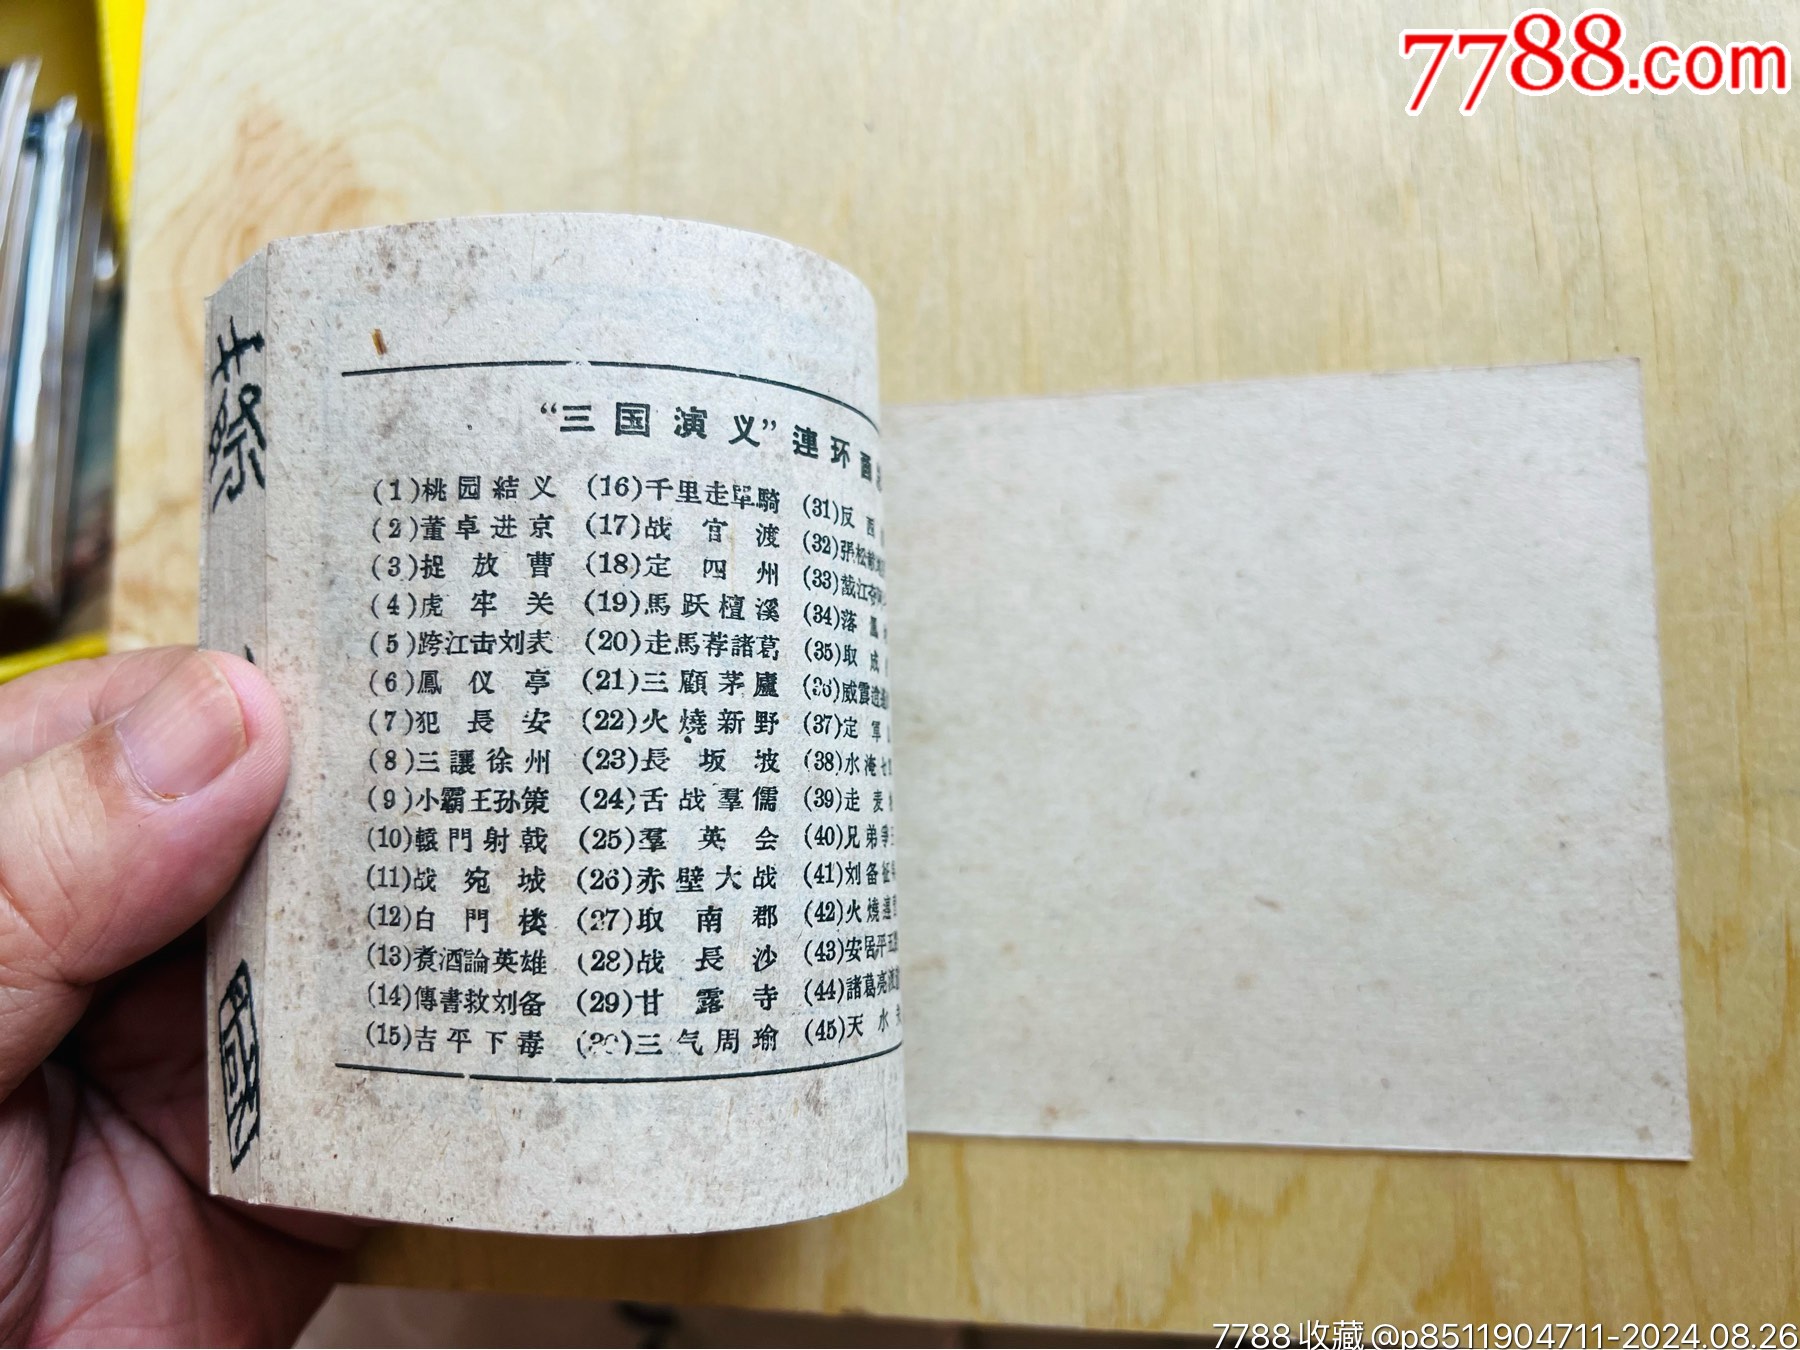 7788.com
蔡
“三国演义”連环画
(1)桃园結义
(2)董卓进京
(3)捉放曹
(4)虎牢关
(5)跨江击刘表
(6)鳳仪亭
(7)犯長安
(8)三讓徐州
(9)小霸王孙策
(10)轅門射戟
(11)战宛城
(12)白門楼
(13)煑酒論英雄
(14)傳書救刘备
(15)吉平下毒
(16)千里走单騎
(17)战官渡
(18)定四州
(19)馬跃檀溪
(20)走馬荐諸葛
(21)三顧茅廬
(22)火燒新野
(23)長坂坡
(24)舌战羣儒
(25)羣英会
(26)赤壁大战
(27)取南郡
(28)战長沙
(29)甘露寺
三气周瑜
(31)反西
(32)張松献
(33)截江夺
(34)落鳳
(35)取成
(36)威震逍遥
(37)定軍
(38)水淹七
(39)走麦
(40)兄弟爭王
(41)刘备征
(42)火燒連
(43)安居平五
(44)諸葛亮
(45)天水
7788收藏@p8511904711-2024.08.26